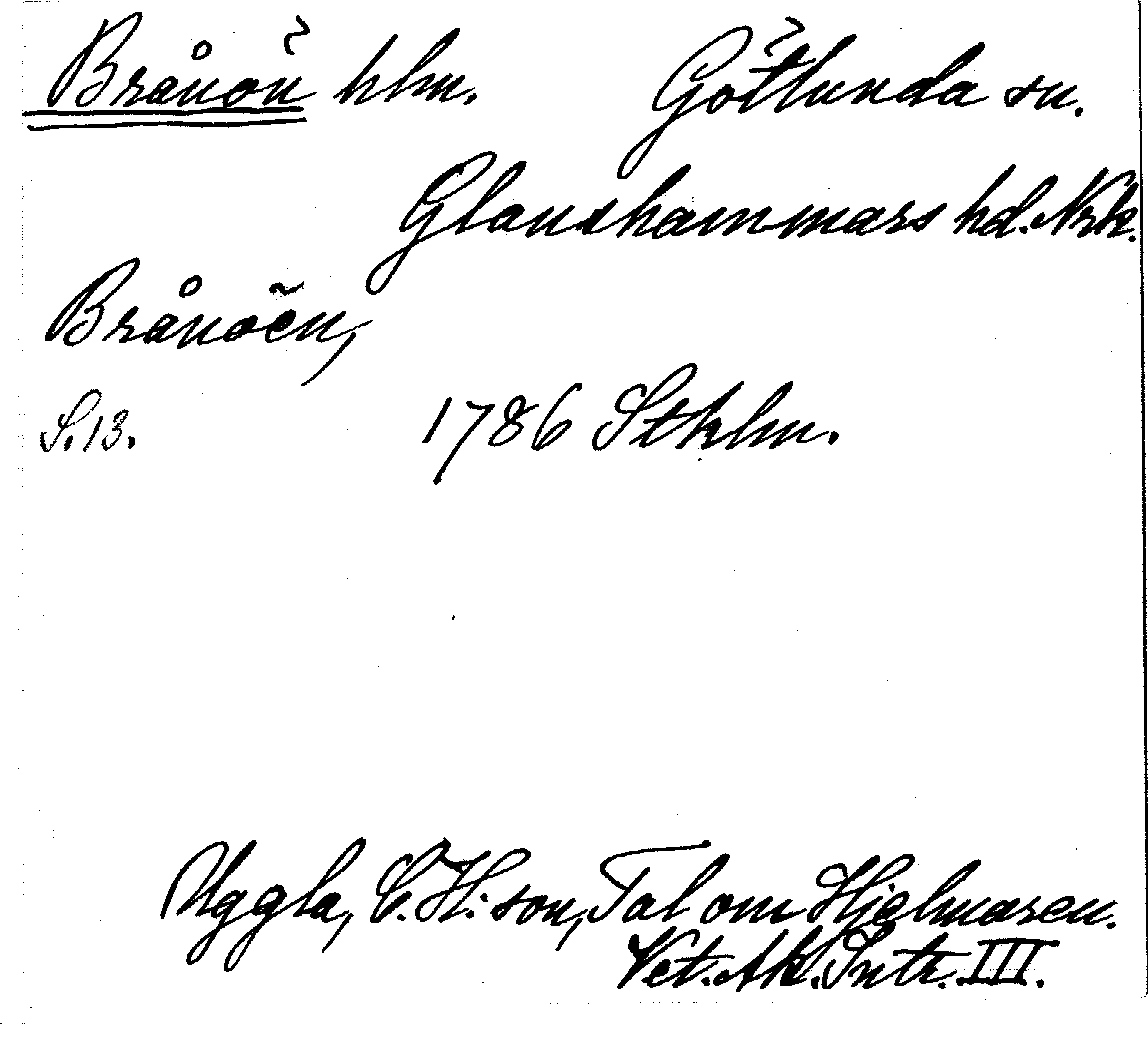 Brånön hlm. Götlunda sn.
Glanshammars hd. Nrk.
Brånöen,
S. 13. 1786 Sthlm.
Uggla, C. H:son, Tal om Hjelmaren.
Vet. Ak. Intr. III.